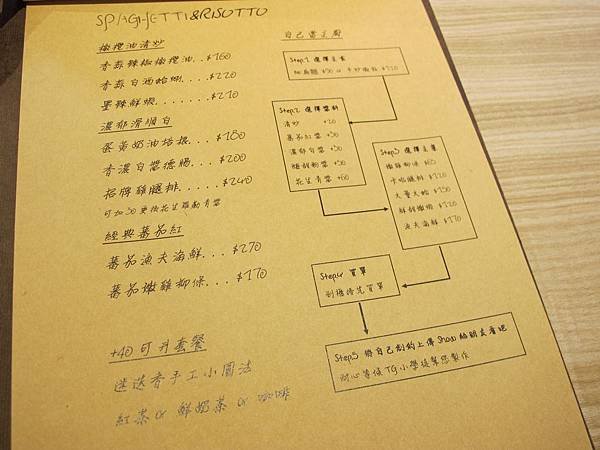 SPAGHETTI&RISOTTO
橄欖油清炒
香蒜辣椒橄欖油..$160
香蒜白酒蛤蜊...$220
墨辣鮮蝦.......$210
濃郁滑順白
蛋黃奶油培根...$180
香濃白醬德腸...$200
招牌雞腿排.....$240
可加30更換花生羅勒青醬
經典蕃茄紅
蕃茄漁夫海鮮...$270
蕃茄嫩雞柳條...$170
+40可升套餐
迷迭香手工小圓法
紅茶or鮮奶茶or咖啡
自己當主廚
Step.1 選擇主食
$90 or $110
Step.2 選擇醬料
清炒 +20
蕃茄紅醬 +30
濃郁白醬 +30
+50
花生青醬 +60
Step.3 選擇主菜
嫩雞柳條 $65
$120
大蛤 $130
鮮甜嫩蝦 $120
漁夫海鮮 $170
Step.4 買單
到櫃檯先買單
Step.5 將自己創的上傳Show給朋友看吧
耐心等候TG小學徒幫您製作